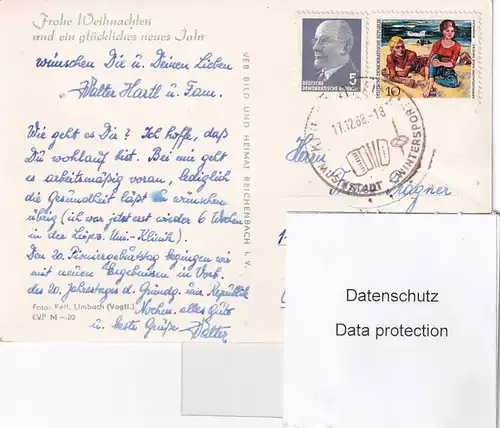 Frohe Weihnachten
und ein glückliches neues Jahr
wünschen Dir u. Deinen Lieben
Walter Hartl u. Fam.
Wie geht es Dir? Ich hoffe, daß
Du wohlauf bist. Bei mir geht
es arbeitsmäßig voran, lediglich
die Gesundheit läßt zu wünschen
übrig (ich war jetzt erst wieder 6 Wochen
in der Leipz. Uni-Klinik).
Den 20. Pioniergeburtstag begingen wir
mit neuen Ergebnissen in Vorb.
des 20. Jahrestages d. Gründg. uns. Republik
Nochm. alles Gute
u. beste Grüße Walter
Foto: Kerl, Limbach (Vogtl.)
EVP M -.20
VEB BILD UND HEIMAT REICHENBACH I. V.
5
DEUTSCHE
DEMOKRATISCHE REPUBLIK
10
17.12.68-18
MUSIKSTADT
WINTERSPORT
Herrn
Wagner
Datenschutz
Data protection